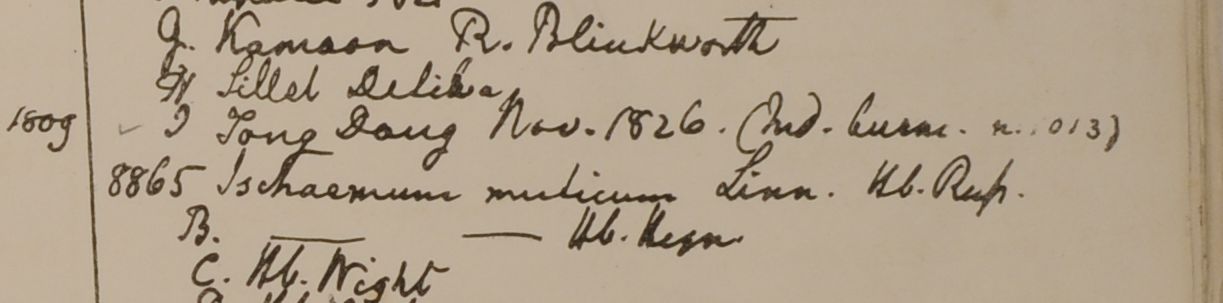 G. Kamaon R. Blinkworth
H Sillet Delika
1809 I Tong Doug Nov. 1826. (Ind. burm. n. 1013)
8865 Ischaemum muticum Linn. Hb. Rup.
B. — — Hb. Heyn.
C. Hb. Wight